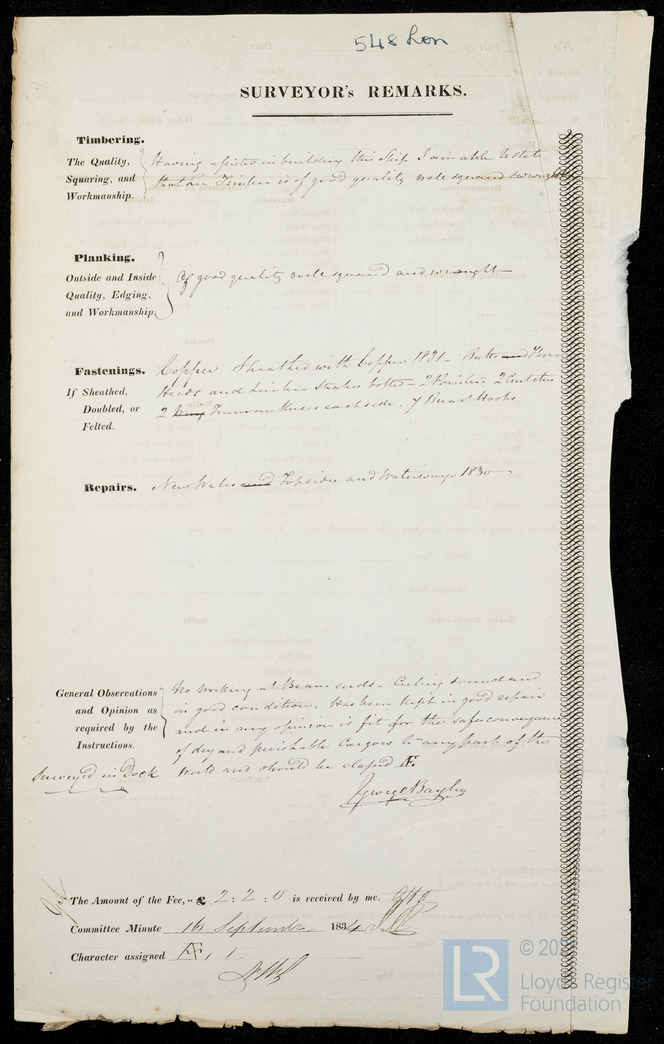 548 Lon
SURVEYOR's REMARKS.
Timbering.
The Quality, Squaring, and Workmanship.
Having assisted in building this Ship I am able to state
that her Timber is of good quality well squared & wrought
Planking.
Outside and Inside Quality, Edging, and Workmanship.
Of good quality well squared and wrought
Fastenings.
If Sheathed, Doubled, or Felted.
Copper Sheathed with Copper 1831 - Butts and Floor
Heads and Limber Strakes bolted - 2 Pointers 2 Crutches
2 Transom Knees each side. 7 Breast Hooks.
Repairs.
New Wales and Topsides and Waterways 1830
General Observations and Opinion as required by the Instructions.
No working at Beam ends - Ceiling sound and
in good condition. Has been kept in good repair
and in my opinion is fit for the safe conveyance
of dry and perishable Cargoes to any part of the
World and should be classed Æ
Surveyed in Dock
George Bayley
The Amount of the Fee, .. £ 2 : 2 : 0 is received by me.
Committee Minute 16 September 1834
Character assigned Æ 1
LR
© 202
Lloyd's Register
Foundation